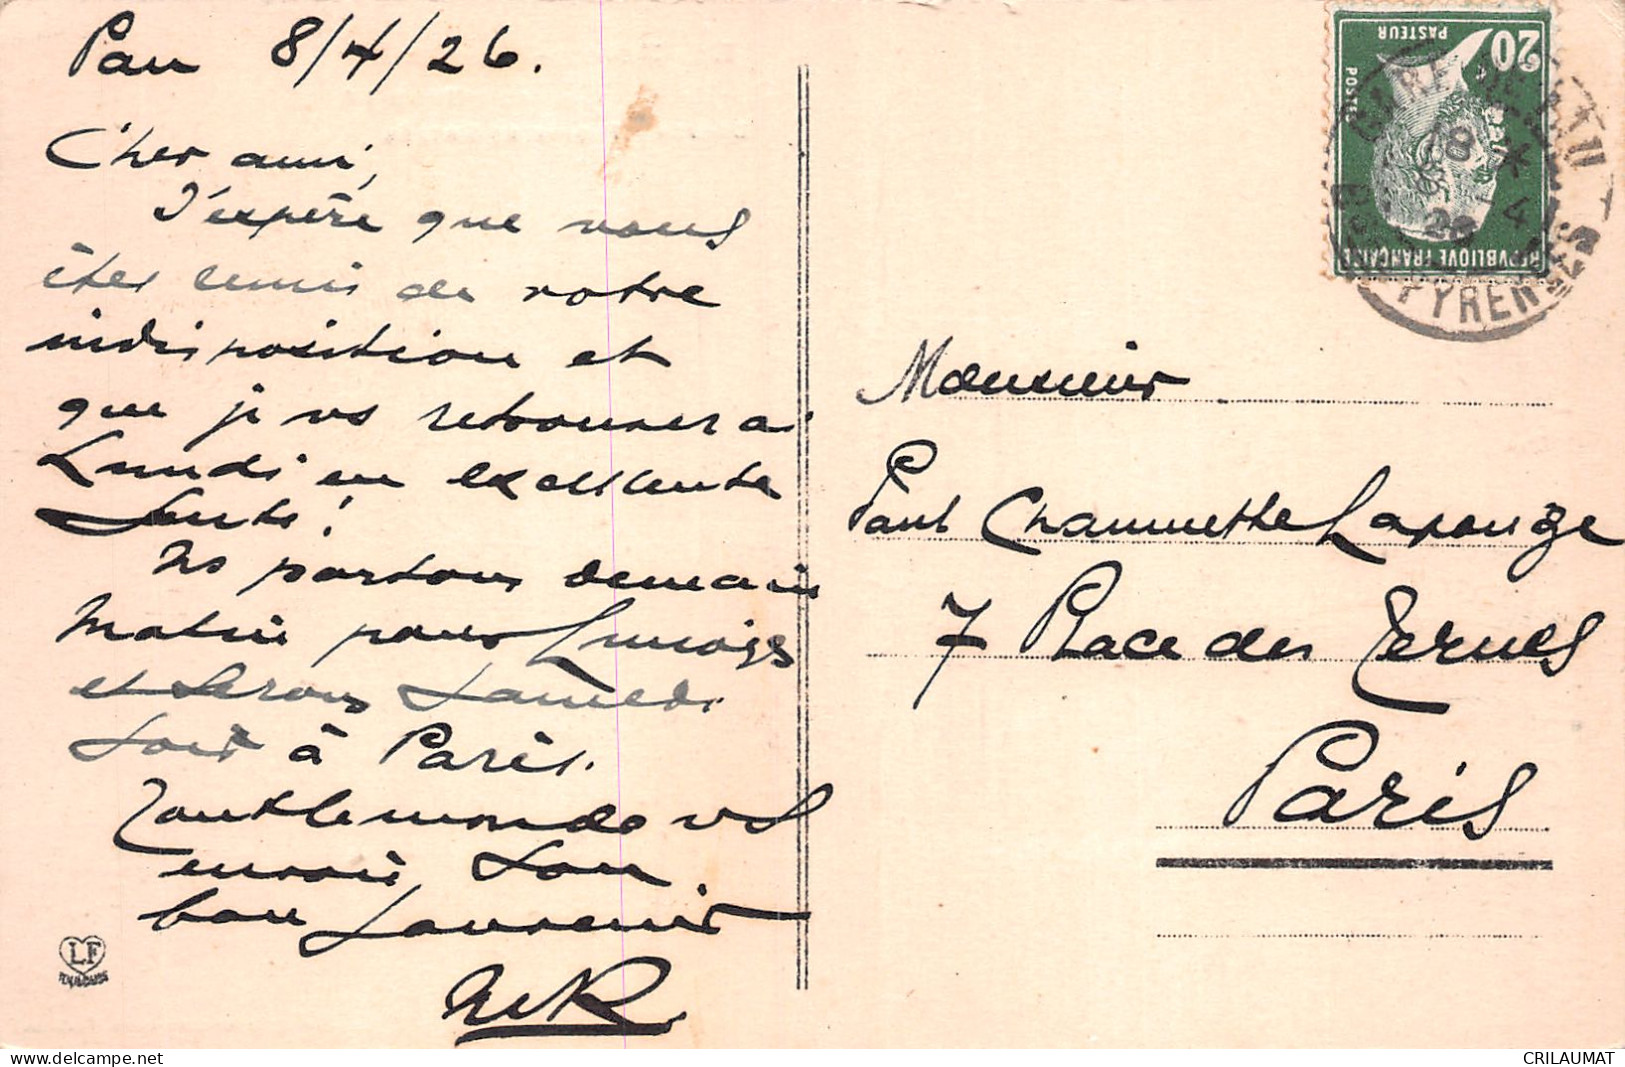 Pau 8/4/26.
Cher ami,
J'espère que vous
êtes remis de votre
indisposition et
que je vs retrouverai
Lundi en excellente
santé!
Ns partons demain
matin pour Limoges
et serons Samedi
soir à Paris.
Tout le monde vs
envoie son
bon souvenir
LF
TOULOUSE
20
PASTEUR
POSTES
REPUBLIQUE FRANÇAISE
GARE DE PAU
18 *
8 - 4
26
BSES PYRENEES
Monsieur
Paul Chaumette Laponze
7 Place des Ternes
Paris
delcampe.net
CRILAUMAT